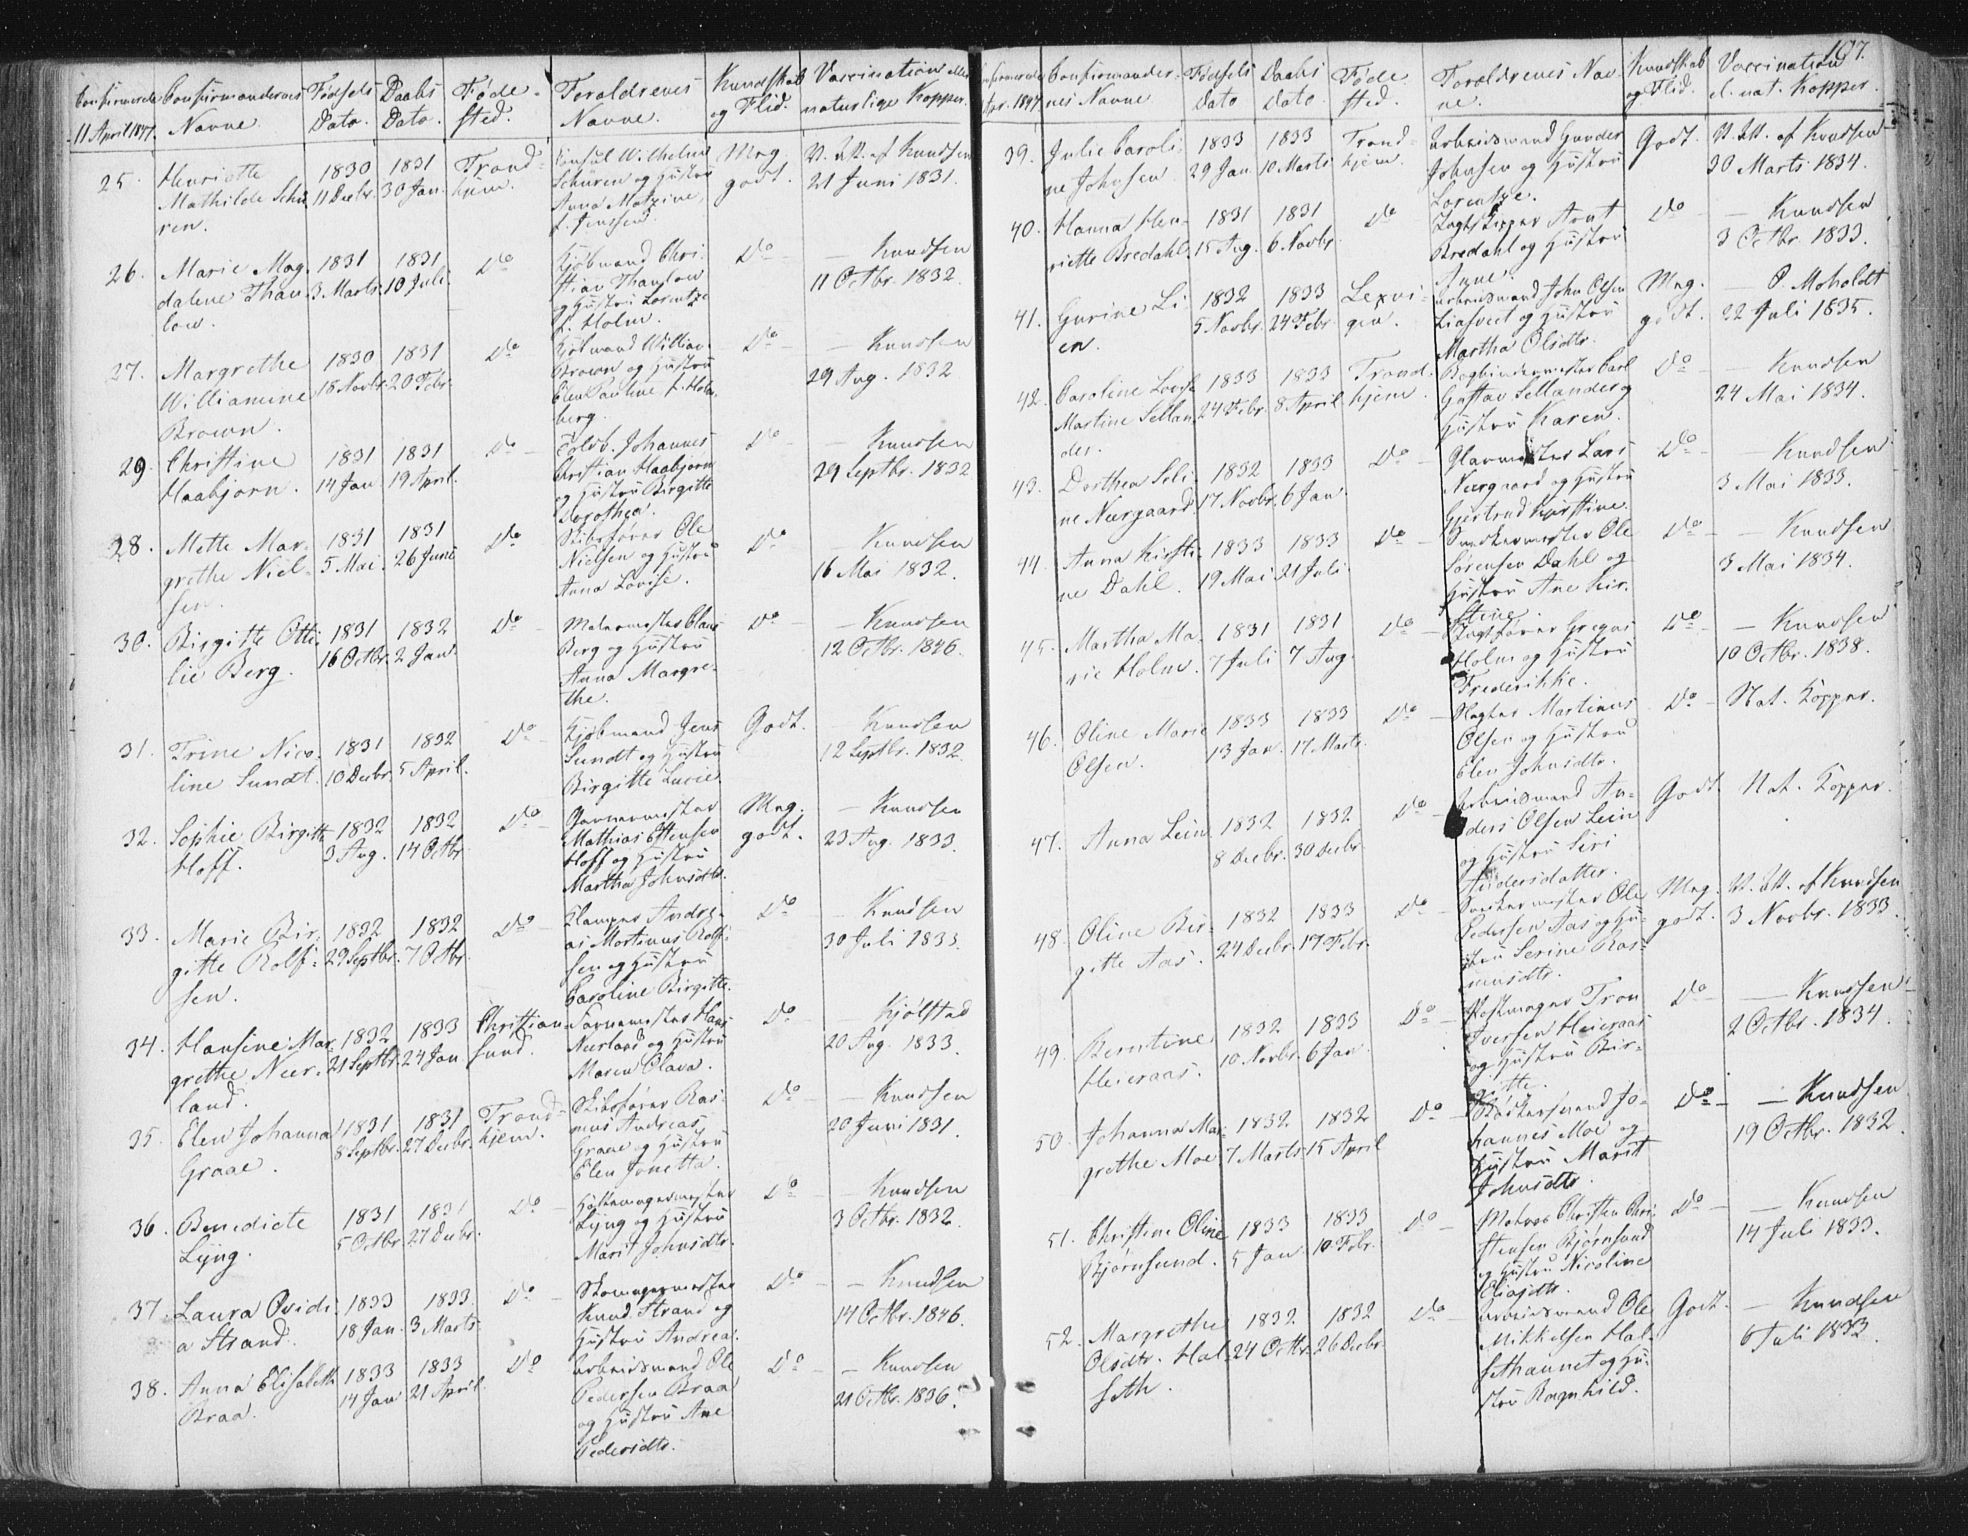 Confirmerede Confirmandernes Fødsels Daabs Føde Forældrenes Kundskab Vaccination eller
11 April 1847. Navne. Dato. Dato. sted. Navne. og Flid. naturlige Kopper.
25. Henriette 1830 1831 Trond- Consul Wilhelm Meg. V. Att. af Knudsen
Mathilde Schü- 11 Decbr. 30 Jan. hjem. Schüren og Hustru godt. 21 Juni 1831.
ren. Anna
f. Jenssen.
26. Marie Mag- 1831 1831 Do Kjøbmand Chri- Do — Knudsen
dalene Thau- 3 Marts. 10 Juli. stian Thaulow 11 Octbr. 1832.
low. og Hustru Lorentze
f. Holm.
27. Margrethe 1830 1831 Do Kjøbmand William Do — Knudsen
Williamine 18 Novbr. 20 Febr. Brown og Hustru 29 Aug. 1832
Brown. Elen Pauline f. Holm-
berg.
29. Christine 1831 1831 Do Johannes Do — Knudsen
Haabjørn. 14 Jan 19 April. Christian Haabjørn 29 Septbr. 1832
og Hustru Birgitte
Dorothea.
28. Mette Mar- 1831 1831 Do Skibsfører Ole Do Knudsen
grethe Niel- 5 Mai. 26 Juni Nielsen og Hustru 16 Mai 1832.
sen. Anna Lovise.
30. Birgitte Otti- 1831 1832 Do Malermester Claus Do — Knudsen
lie Berg. 16 Octbr. 2 Jan. Berg og Hustru 12 Octbr. 1846.
Anna Margre-
the.
31. Trine Nico- 1831 1832 Do Kjøbmand Jens Godt. — Knudsen
line Sundt. 10 Decbr. 5 April. Sundt og Hustru 12 Septbr. 1832.
Birgitte Lucie.
32. Sophie Birgitte 1832 1832 Do Garvermester Meg. — Knudsen
Hoff. 3 Aug. 14 Octbr. Mathias godt. 23 Aug. 1833.
Hoff og Hustru
Martha Johnsdtr.
33. Marie Bir- 1832 1832 Do Andre- Do — Knudsen
gitte Rolf- 29 Septbr. 7 Octbr. as Martinus Rolf- 30 Juli 1833.
sen. sen og Hustru
Caroline Birgitte.
34. Hansine Mar- 1832 1833 Christian- Farvermester Hans Do — Kjølstad
grethe Neer- 21 Septbr. 24 Jan sund. Neerland og Hustru 20 Aug. 1833.
land. Maren Olava.
35. Elen Johanna 1831 1831 Trond- Skibsfører Ras- Do — Knudsen
Graae. 8 Septbr. 27 Decbr. hjem. mus Andreas 20 Juni 1831.
Graae og Hustru
Elen Jonetta.
36. Benedicte 1831 1831 Do Do — Knudsen
Lyng. 5 Octbr. 27 Decbr. Lyng og Hustru 3 Octbr. 1832.
Marit Johnsdtr.
37. Laura Ovidi- 1833 1833 Do Skomagermester Do — Knudsen
a Strand. 18 Jan. 3 Marts. Knud Strand og 14 Octbr. 1846.
Hustru Andrea.
38. Anna Elisabeth 1833 1833 Do Arbeidsmand Ole Do — Knudsen
Braa. 14 Jan 21 April Pedersen Braa 21 Octbr. 1836.
og Hustru Ane
Pedersdtr.
107.
Confirmerede Confirmander- Fødsels Daabs Føde Forældrenes Nav- Kundskab Vaccination
Apr. 1847 nes Navne. Dato Dato. sted. ne. og Flid. el. nat. Kopper.
39. Julie Caroli- 1833 1833 Trond- Arbeidsmand Gunder Godt. V. Att. af Knudsen
ne Johnsen. 29 Jan 10 Marts hjem. Johnsen og Hustru 30 Marts 1834.
Lorentze.
40. Hanna Hen- 1831 1831 Do Jagtskipper Arnt Do — Knudsen
riette Bredahl. 15 Aug. 6 Novbr. Bredahl og Hustru 3 Octbr. 1833.
Anne.
41. Gurine Li- 1832 1833 Lexvi- Arbeidsmand John Olsen Meg. — P. Moholdt
en. 5 Novbr. 24 Febr. gen. og Hustru godt. 22 Juli 1835.
Martha Olsdtr.
42. Caroline Lovise 1833 1833 Trond- Bogbindermester Carl Do — Knudsen
Martine Sellan- 24 Febr. 8 April hjem. Gustav Sellander og 24 Mai 1834.
der. Hustru Karen.
43. Dorthea Seli- 1832 1833 Do Glarmester Lars Do — Knudsen
ne Neergaard. 17 Novbr. 6 Jan. Neergaard og Hustru 3 Mai 1833.
Gjertrud Kirstine.
44. Anna Kirsti- 1833 1833 Do Snedkermester Ole Do — Knudsen
ne Dahl. 19 Mai 21 Juli. Sørensen Dahl og 3 Mai 1834.
Hustru Ane Kir-
stine.
45. Martha Ma- 1831 1831 Do Jagtfører Gregus Do — Knudsen
rie Holm. 7 Juli 7 Aug. Holm og Hustru 10 Octbr. 1838.
Frederikke.
46. Oline Marie 1833 1833 Do Slagter Martinus Do — Nat. Kopper.
Olsen. 13 Jan. 17 Marts. Olsen og Hustru
Elen Johnsdtr.
47. Anna Lein 1832 1832 Do Arbeidsmand An- Godt. Nat. Kopper.
8 Decbr. 30 Decbr. ders Olsen Lein
og Hustru Siri
Andersdatter.
48. Oline Bir- 1832 1833 Do Snedkermester Ole Meg. V. Att. af Knudsen
gitte Aas. 24 Decbr. 17 Febr. Pedersen Aas og Hu- godt. 3 Novbr. 1833.
stru Serine Ras-
musdtr.
49. Berntine 1832 1833 Do Tron Do — Knudsen
Heieraas. 10 Novbr. 6 Jan. Iversen Heieraas 2 Octbr. 1834.
og Hustru Bir-
gitte.
50. Johanna Mar- 1832 1832 Do Jo- Do — Knudsen
grethe Moe 7 Marts 15 April hannes Moe og 19 Octbr. 1832.
Hustru Marit
Johnsdtr.
51. Christine Oline 1833 1833 Do Matros Christen Chri- Do — Knudsen
Bjørnsund. 5 Jan 10 Febr. stensen Bjørnsund 14 Juli 1833.
og Hustru Nicoline
Eliasdtr.
52. Margrethe 1832 1832 Do Arbeidsmand Ole Godt. — Knudsen
Olsdtr. Hal- 24 Octbr. 26 Decbr. Mikkelsen Hal- 6 Juli 1833.
seth. og Hu-
stru Ragnhild.